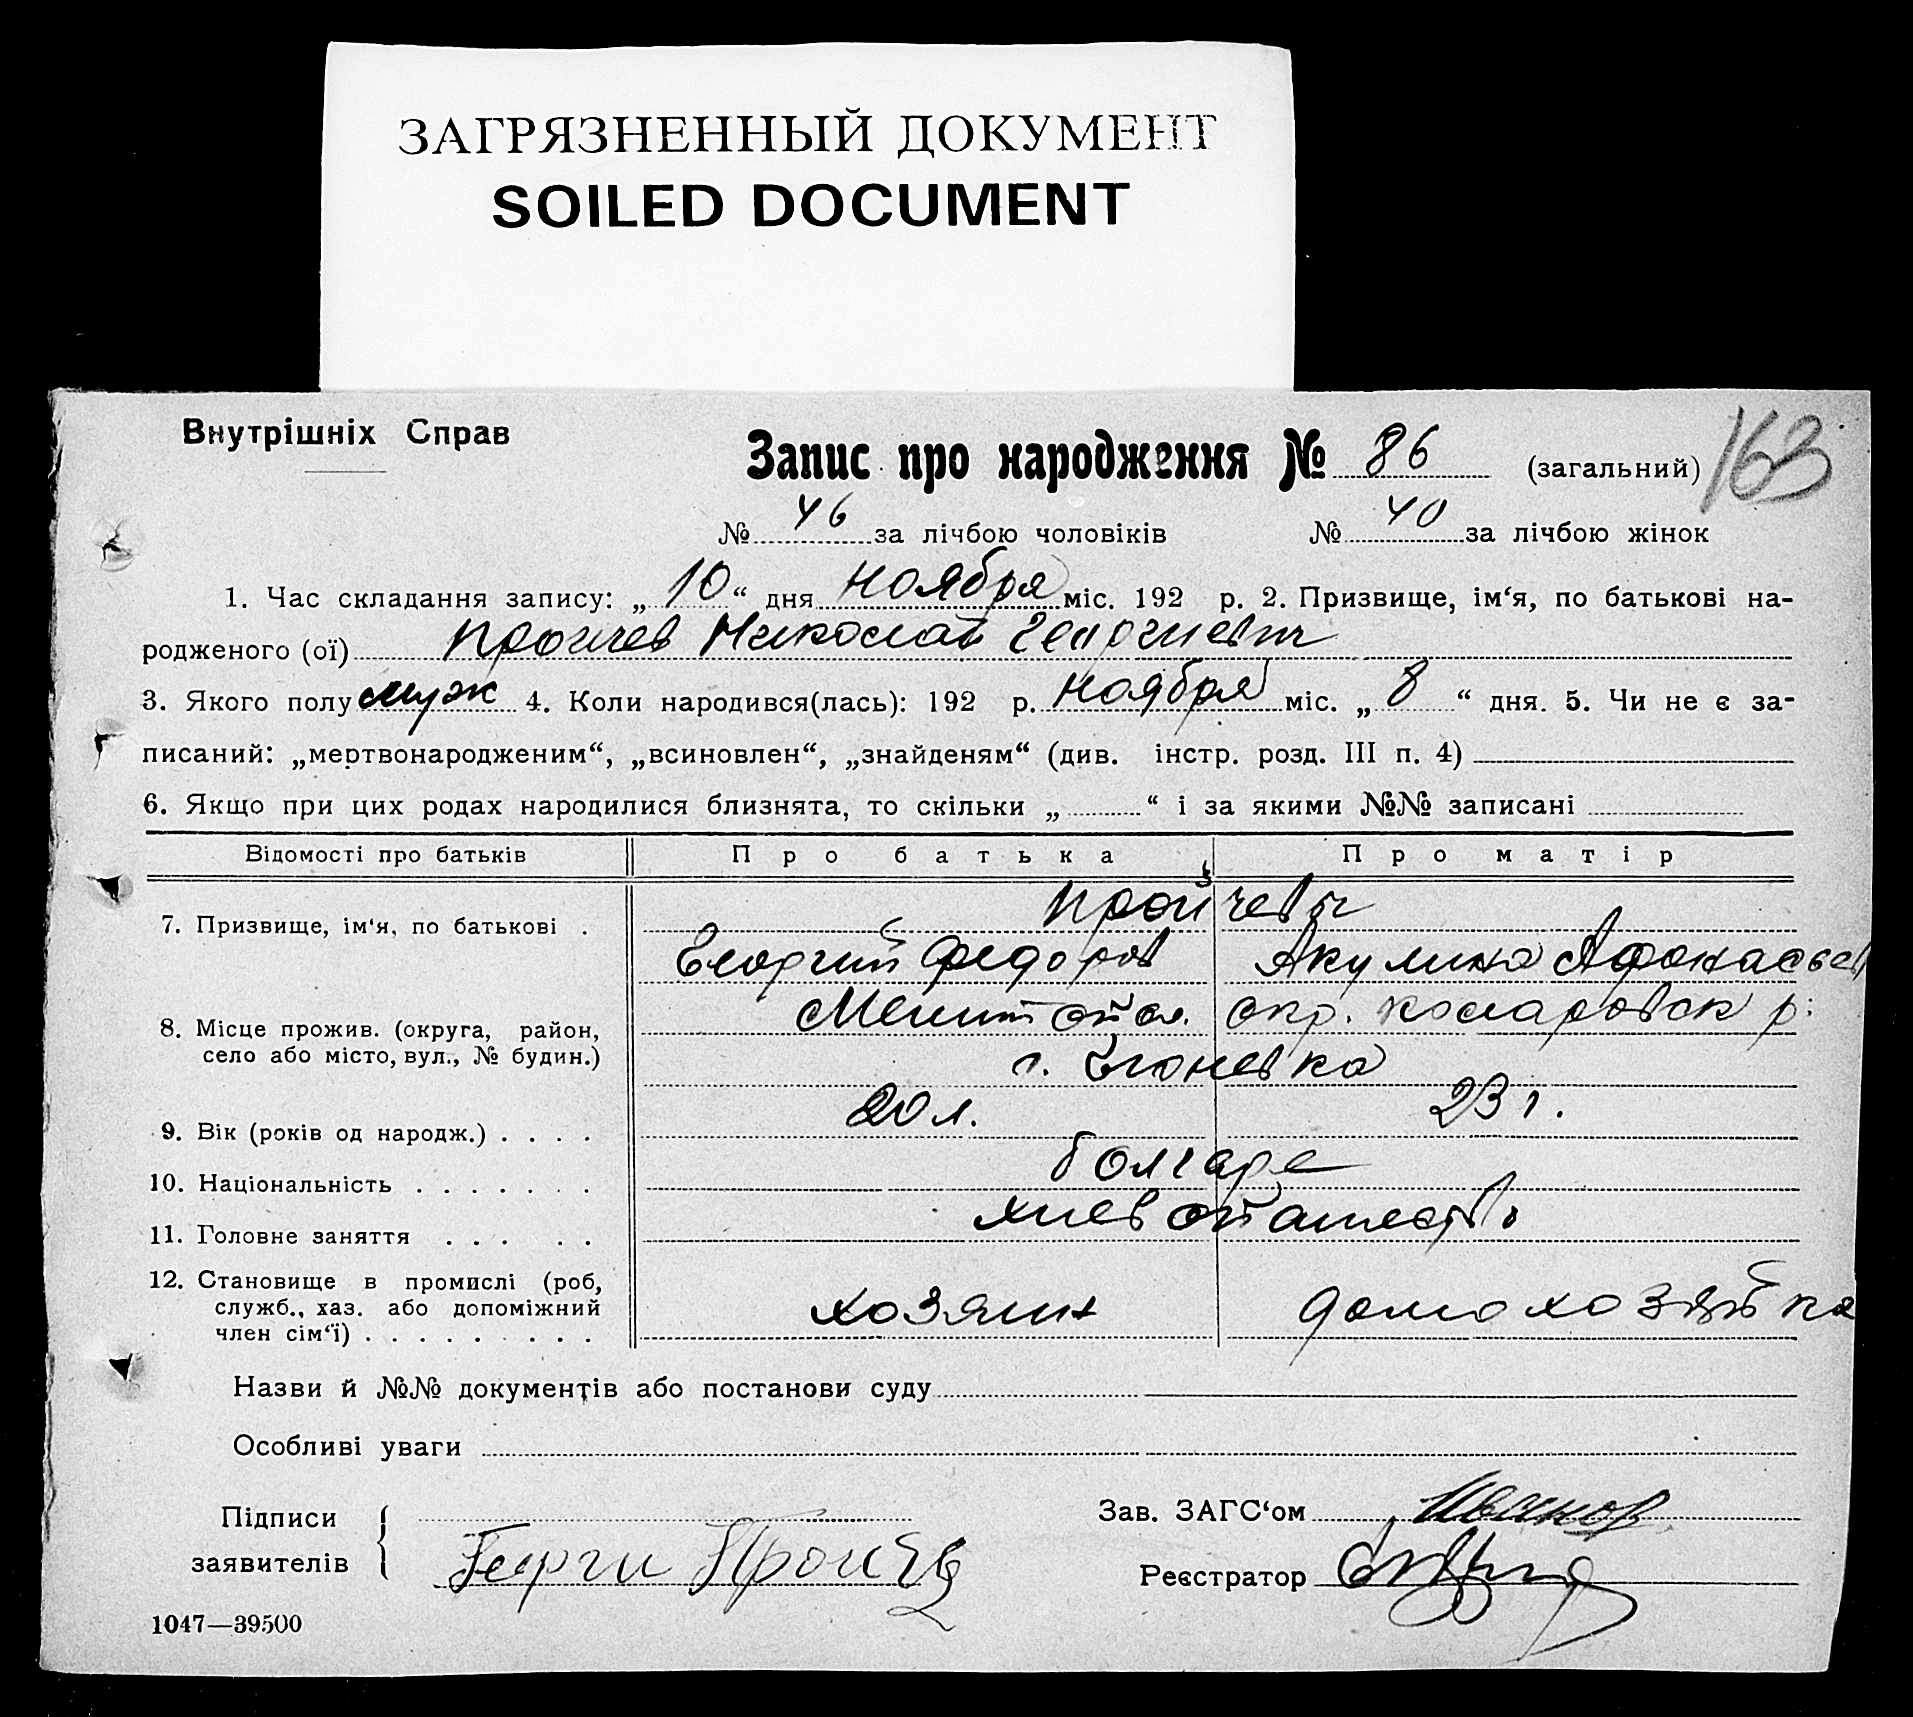 ЗАГРЯЗНЕННЫЙ ДОКУМЕНТ
SOILED DOCUMENT
Внутрішніх Справ
163
Запис про народження № 86 (загальний)
№ 46 за лічбою чоловіків № 40 за лічбою жінок
1. Час складання запису: „10“ дня ноября міс. 192 р. 2. Призвище, ім‘я, по батькові на-
родженого (ої) Пройчев Николай Георгиевич
3. Якого полу муж 4. Коли народився(лась): 192 р. ноября міс. „8“ дня. 5. Чи не є за-
писаний: „мертвонародженим“, „всиновлен“, „знайденям“ (див. інстр. розд. III п. 4)
6. Якщо при цих родах народилися близнята, то скільки „ “ і за якими №№ записані
Відомості про батьків Про батька Про матір
Пройчевы
7. Призвище, ім‘я, по батькові .
Георгий Федоров Акулина Афанасьев
8. Місце прожив. (округа, район, Мелитопол. окр. коларовск р:
село або місто, вул., № будин.)
с.
9. Вік (років од народж.) . . . . 20 л. 23 г.
10. Національність . . . . . . . болгаре
11. Головне заняття . . . . . хлебопашество
12. Становище в промислі (роб,
служб., хаз. або допоміжний хозяин домохозяйка
член сім‘ї) . . . . . . . . .
Назви й №№ документів або постанови суду
Особливі уваги
Підписи Зав. ЗАГС‘ом
заявителів Георги Пройчев Реєстратор
1047—39500